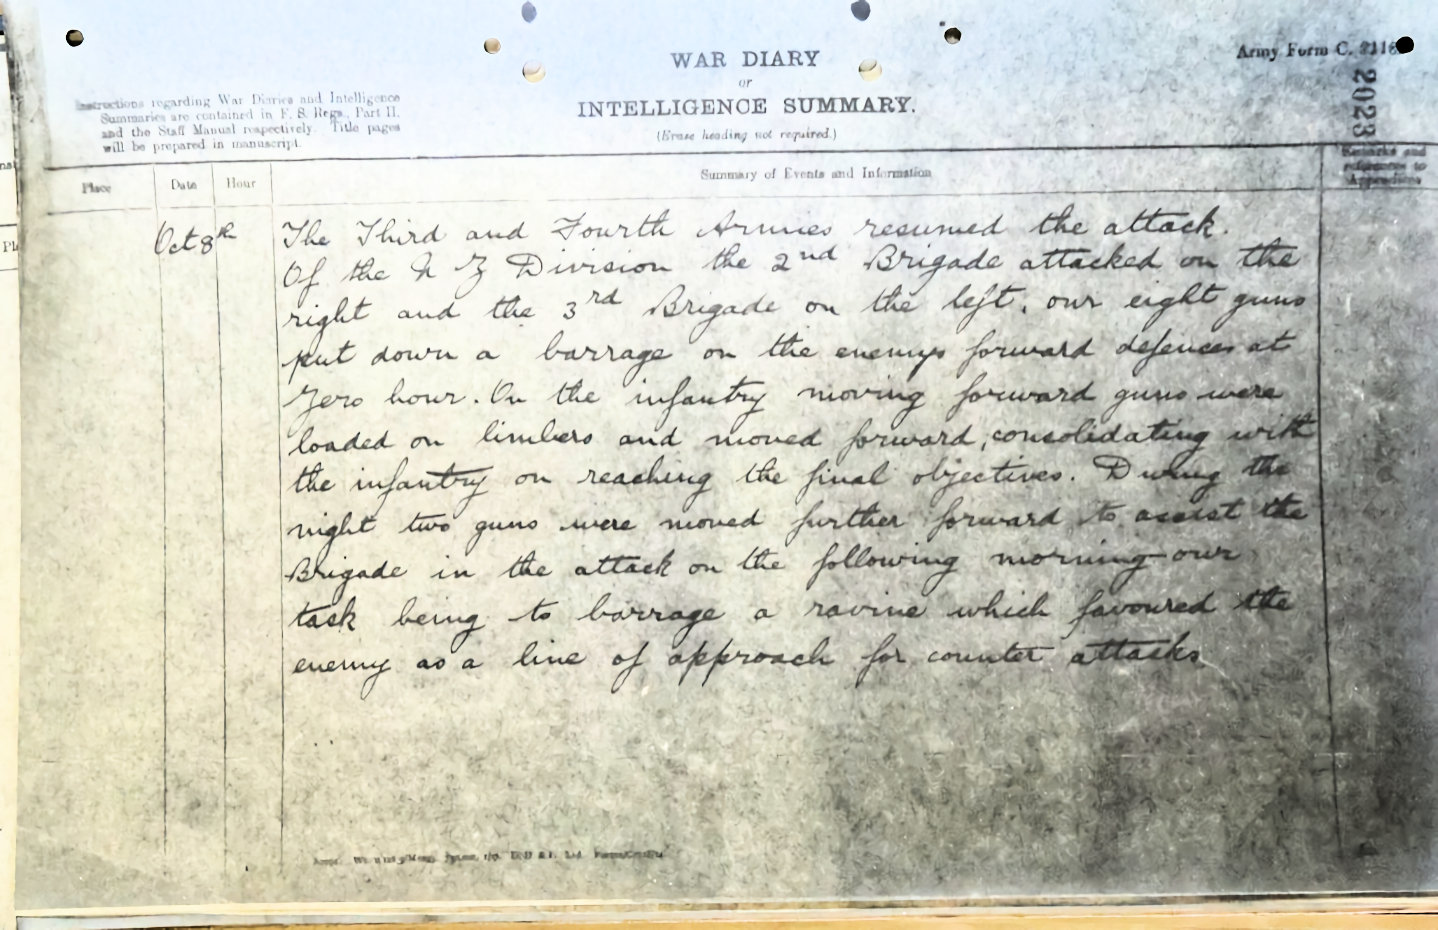 WAR DIARY
or
INTELLIGENCE SUMMARY.
(Erase heading not required.)
Army Form C. 2118
2023
Instructions regarding War Diaries and Intelligence
Summaries are contained in F. S. Regs., Part II.
and the Staff Manual respectively. Title pages
will be prepared in manuscript.
Place
Date
Hour
Summary of Events and Information
Remarks and
references to
Appendices
Oct 8th
The Third and Fourth Armies resumed the attack.
Of the N Z Division the 2nd Brigade attacked on the
right and the 3rd Brigade on the left. our eight guns
put down a barrage on the enemys forward defences at
Zero hour. On the infantry moving forward guns were
loaded on limbers and moved forward, consolidating with
the infantry on reaching the final objectives. During the
night two guns were moved further forward to assist the
Brigade in the attack on the following morning our
task being to barrage a ravine which favoured the
enemy as a line of approach for counter attacks